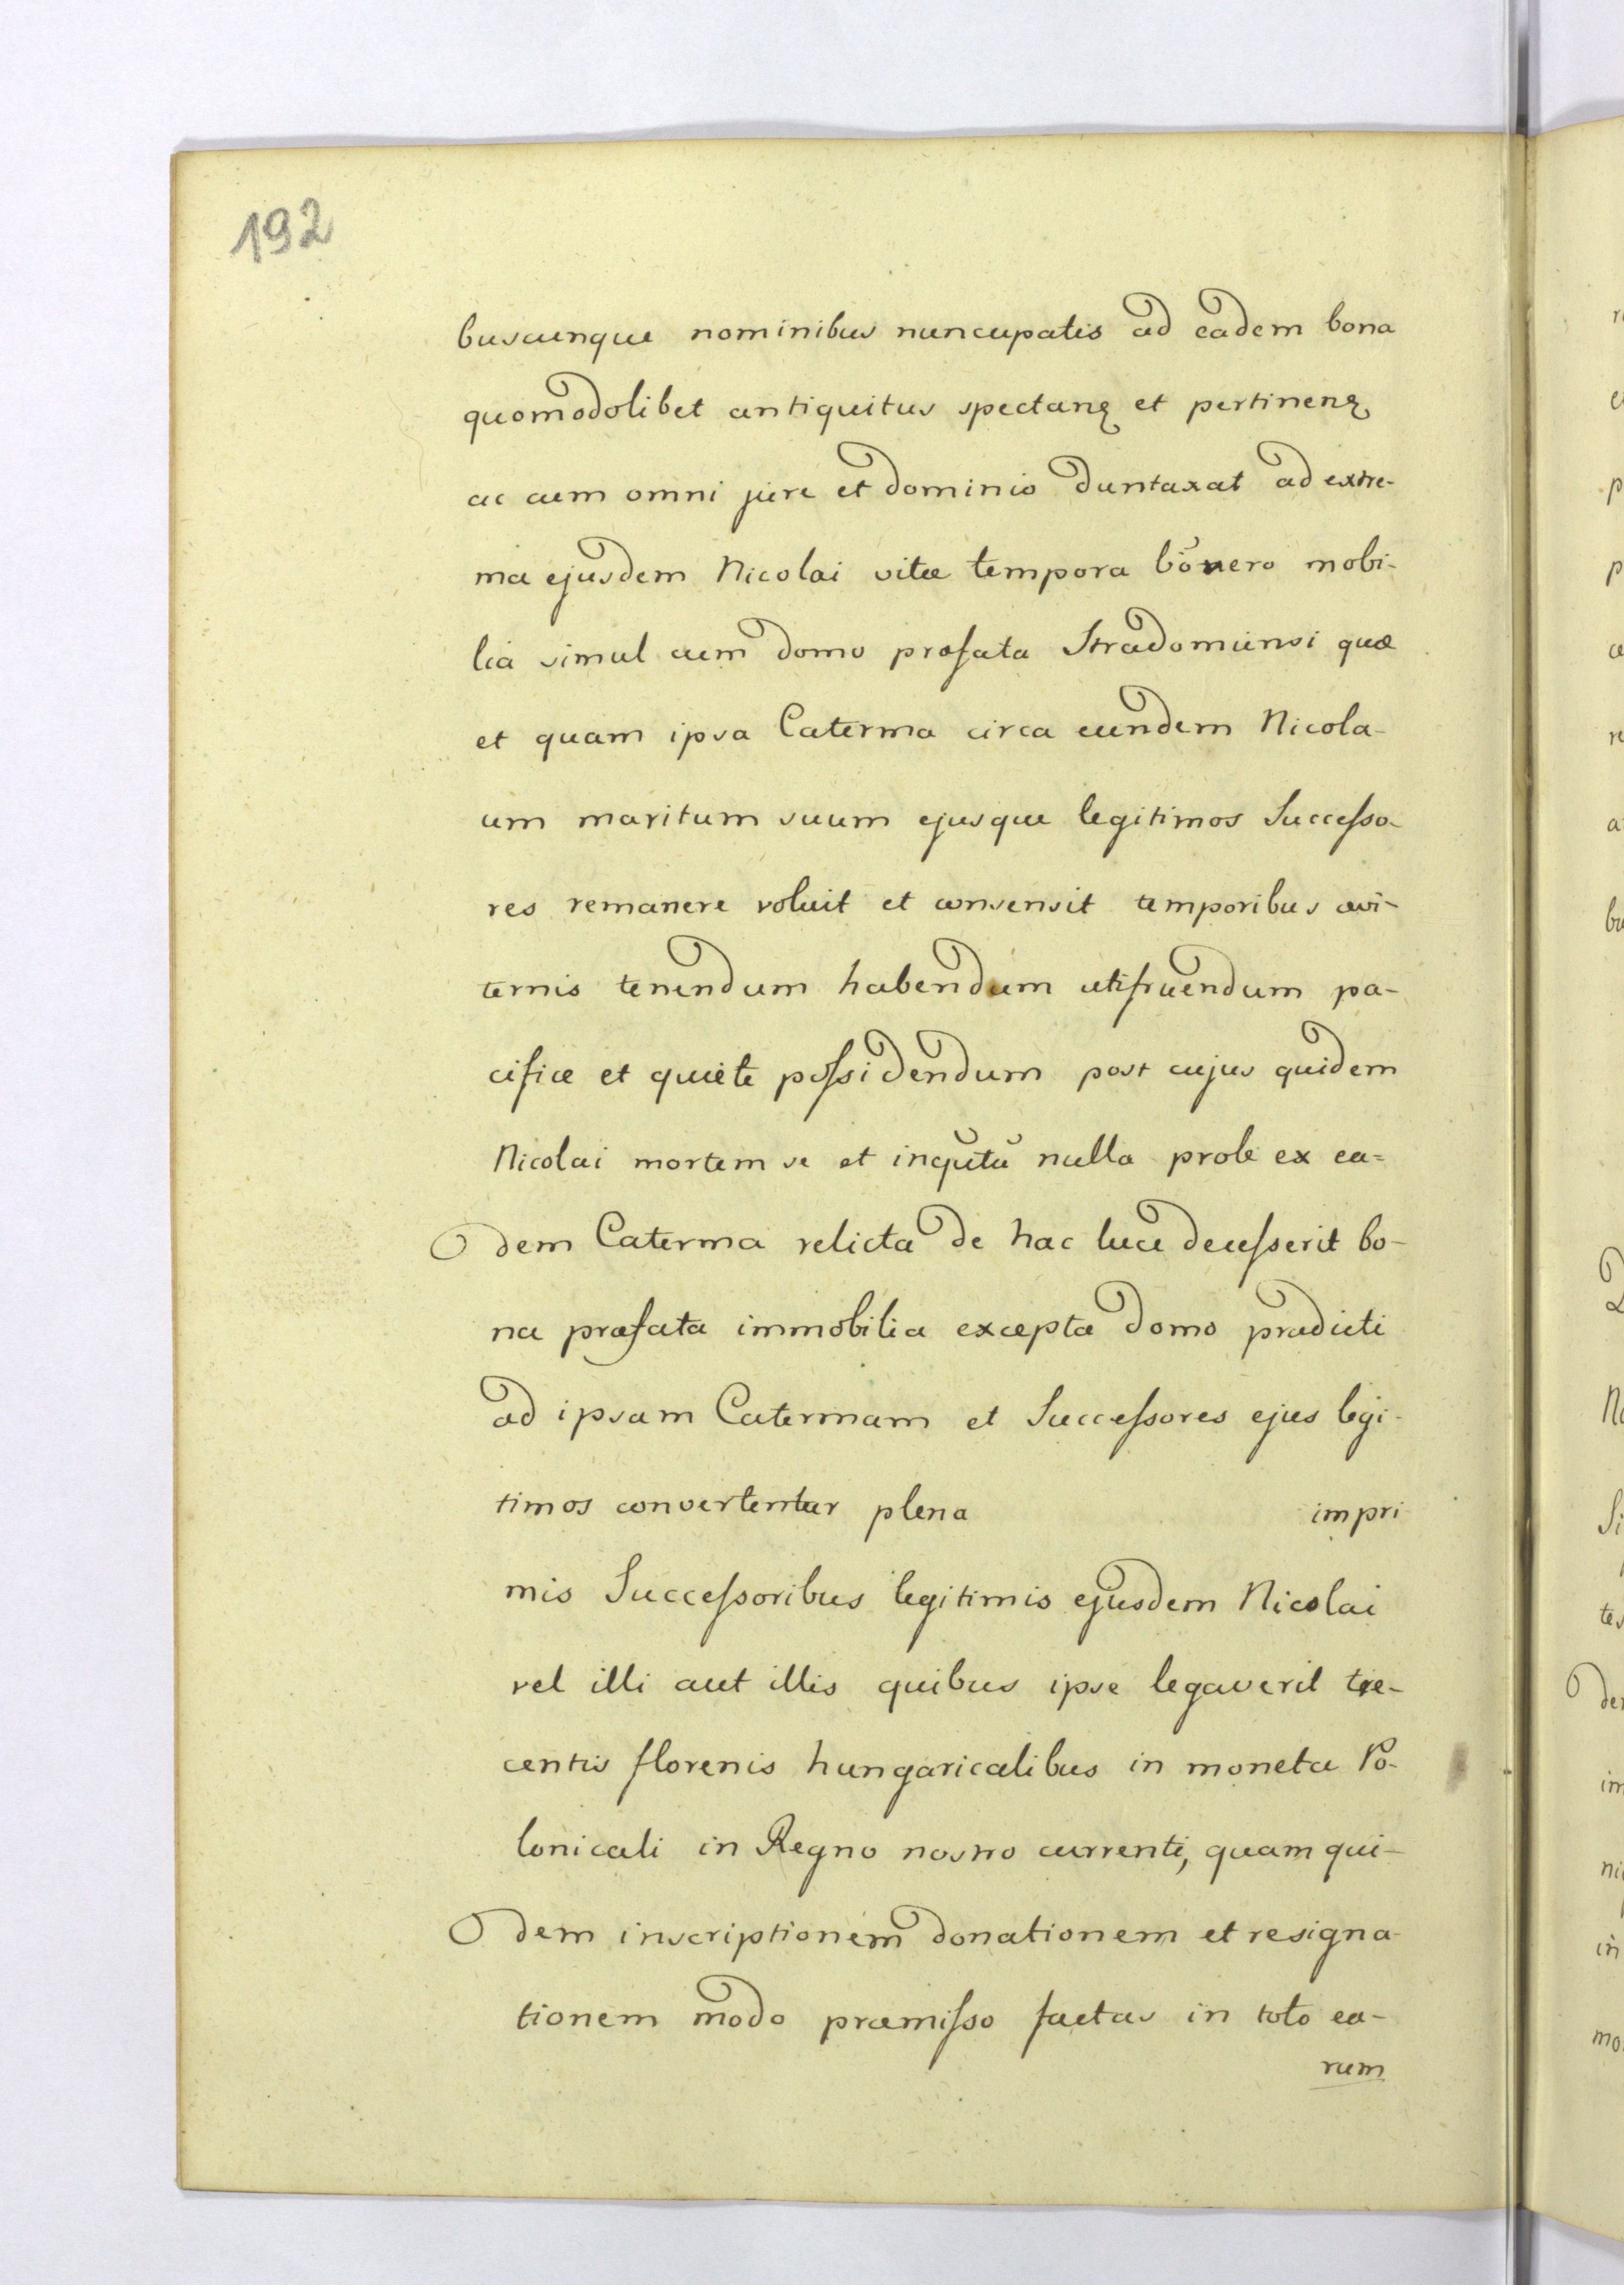 192
buscunque nominibus nuncupatis ad eadem bona
quomodolibet antiquitus spectanꝗ et pertinenꝗ
ac cum omni jure et dominio duntaxat ad extre-
ma ejusdem Nicolai vitæ tempora bōvero mobi-
lia simul cum domo præfata Stradomiensi quæ
et quam ipsa Caterma circa eundem Nicola-
um maritum suum ejusque legitimos Successo-
res remanere voluit et consensit temporibus ævi-
ternis tenendum habendum utifruendum pa-
cifice et quiete possidendum post cujus quidem
Nicolai mortem se et inqūtū nulla prole ex ea=
dem Caterma relicta de hac luce decesserit bo-
na præfata immobilia excepta domo prædicti
ad ipsam Catermam et Successores ejus legi-
timos convertentur plena impri
mis Successoribus legitimis ejusdem Nicolai
vel illi aut illis quibus ipse legaverit tre-
centis florenis hungaricalibus in moneta Po-
lonicali in Regno nostro currenti, quam qui-
dem inscriptionem donationem et resigna-
tionem modo præmisso factas in toto ea-
rum